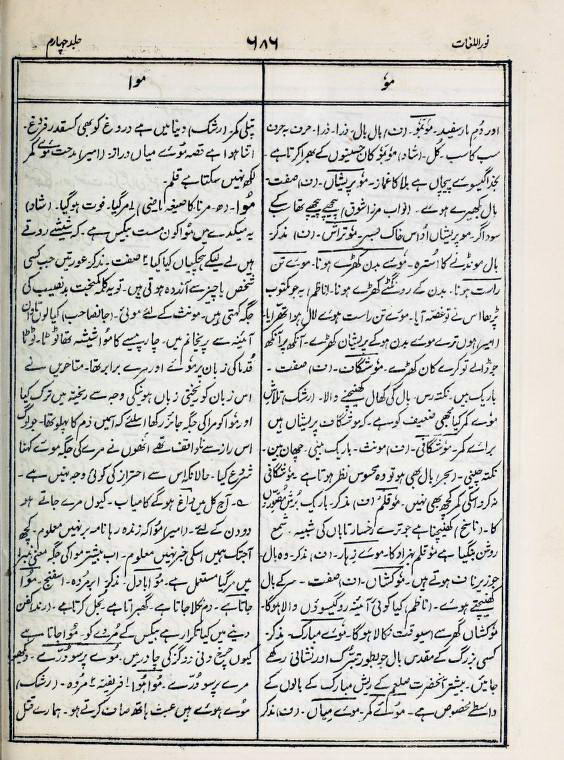 نور اللغات
۶۸۶
جلد چہارم
مؤ
موا
اور دُمِ مار سفید۔ موُ بَمُو۔ (ف) بال بال۔ ذرا۔ ذرا۔ حرف بہ حرف
سب کا سب۔ کُل۔ (شاد) مو بمو کان حسینوں کے بھرا کرتا ہے۔
گیسوے پیچاں ہے بلا کا غماز۔ مو پریشاں۔ (ف) صفت۔
بال بکھیرے ہوے۔ (نواب مرزا شوق) پیچھے پیچھے تھا سب کے
سوداگر۔ مو پریشاں اُداس خاک بسر۔ مو تراش۔ (ف) مذکر۔
بال مونڈنے کا استرہ۔ موے بدن کھڑے ہونا۔ موے تن
راست ہونا۔ بدن کے رونگٹے کھڑے ہونا۔ (ناظم) یہ جو مکتوب
پڑھا اس نے تو غصہ آیا۔ موے تن راست ہوے لال ہوا تھرایا۔
(امیر) ہوں ترے موے بدن ہوکے پریشان کھڑے۔ آنکھ پر آنکھ
جو ڈالے تو کرے کان کھڑے۔ موشگاف۔ (ف) صفت۔
باریک بیں۔ نکتہ رس۔ بال کی کھال کھینچنے والا۔ (رشک) تلاش
موے کمر کیا مجھی ضعیف کو ہے۔ کہ موشگاف پریشاں ہیں
براے کمر۔ موشگافی۔ (ف) مونث۔ باریک بینی۔ چھان بین۔
نکتہ چینی۔ (بحر) بال بھی ہو تو وہ محسوس نظر ہوتا ہے۔ موشگافی
نہ کرو اسکی کمر کچھ بھی نہیں۔ موقلم (ف) مذکر۔ باریک بُرش مُصوّر
کا۔ (ناسخ) کھینچنا ہے جو ترے رُخسار تاباں کی شبیہہ۔ شمع
روشن بنگیا ہے موقلم بہزاد کا۔ موے زہار۔ (ف) مذکر۔ وہ بال
جو زیر ناف ہوتے ہیں۔ موکشاں۔ (ف) صفت۔ سر کے بال
کھینچتے ہوے۔ (ناظم) کیا کوئی آئینہ رو گیسوؤں والا ہوگا۔
موکشاں گھر سے اسیوقت نکالا ہوگا۔ موے مبارک۔ مذکر۔
کسی بزرگ کے مقدس بال جو بطور تبرک اور نشانی رکھے
جائیں۔ بیشتر آنحضرت صلعم کے ریش مبارک کے بالوں کے
واسطے مخصوص ہے۔ موے کمر۔ موے میاں۔ (ف) مذکر
پتلی کمر۔ (رشک) دنیا میں ہے دروغ کو بھی کسقدر فروغ۔
اتنا ہوا ہے قصہ موے میاں دراز۔ (امیر) مدحت موے کمر
لکھ نہیں سکتا ہے قلم۔
مُوا۔ (ھ۔ مرنا کا صیغہ ماضی) ۱۔ مرگیا۔ فوت ہوگیا۔ (شاد)
یہ میکدے میں مُوا کون مست بیکس ہے۔ کہ شیشے روتے
ہیں لے لیکے ہچکیاں کیا کیا ۲ صفت۔ مذکر۔ عورتیں جب کسی
شخص یا چیز سے آزردہ ہوتی ہیں۔ تو یہ کلمہ کمبخت بدنصیب کی
جگہ کہتی ہیں۔ مونث کے لئے موئی۔ (جانصاحب)
آئینہ سے پر خانم میں۔ چار پیسے کا موا شیشہ تھا ٹوٹا۔ ٹوٹا
قُدما کی زبان پر مُوے اور مرے برابر تھا۔ متاخرین نے
اس زبان کو ریختی زباں ہونیکی وجہ سے ریختہ میں ترک کیا
اور مُوا کو مرا کی جگہ جائز رکھا اسلئے کہ اسمیں ذم کا پہلو تھا۔ جو لوگ
اس راز سے ناواقف تھے اُنھوں نے مرے کی جگہ موے کہنا
شروع کیا۔ حالانکہ اس سے احتراز کی کوئی وجہ نہیں ہے۔
ے۔ آج کل میں داغ ہوگے کامیاب۔ کیوں مرے جاتے ہو
دو دن کے لئے۔ (امیر) مُوا کہ زندہ رہا نامہ بر نہیں معلوم۔ کچھ
آجتک ہمیں اسکی خبر نہیں معلوم۔ اب بیشتر موا کی جگہ معنی نمبر ۱
میں مرگیا مستعمل ہے۔ مُوا بادل۔ مذکر۔ ابر مردہ۔ اسفنج۔ مُوا
جاتا ہے۔ دم نکلا جاتا ہے۔ گھبراتا ہے۔ بخل کرتا ہے۔ (رند) کفن
دینے میں کیا تکرار ہے بیکس کے مردے کو۔ مُوا جاتا ہے
کیوں چرخ دنی دو گز کی چادر میں۔ موے پر سو دُرّے۔ دیکھو
مرے پر سو دُرّے۔ مُوا ہوا۔ ۱ فریفتہ ۲ مردہ۔ (رشک)
موے ہوے ہیں عبث ہاتھ صاف کرتے ہو۔ ہمارے قتل